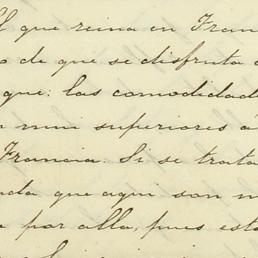 el que reina en Fran
o de que se disfruta
que: las comodidad
n mui superiores á
Francia. Si se trata
da que aqui son m
por alla, pues est